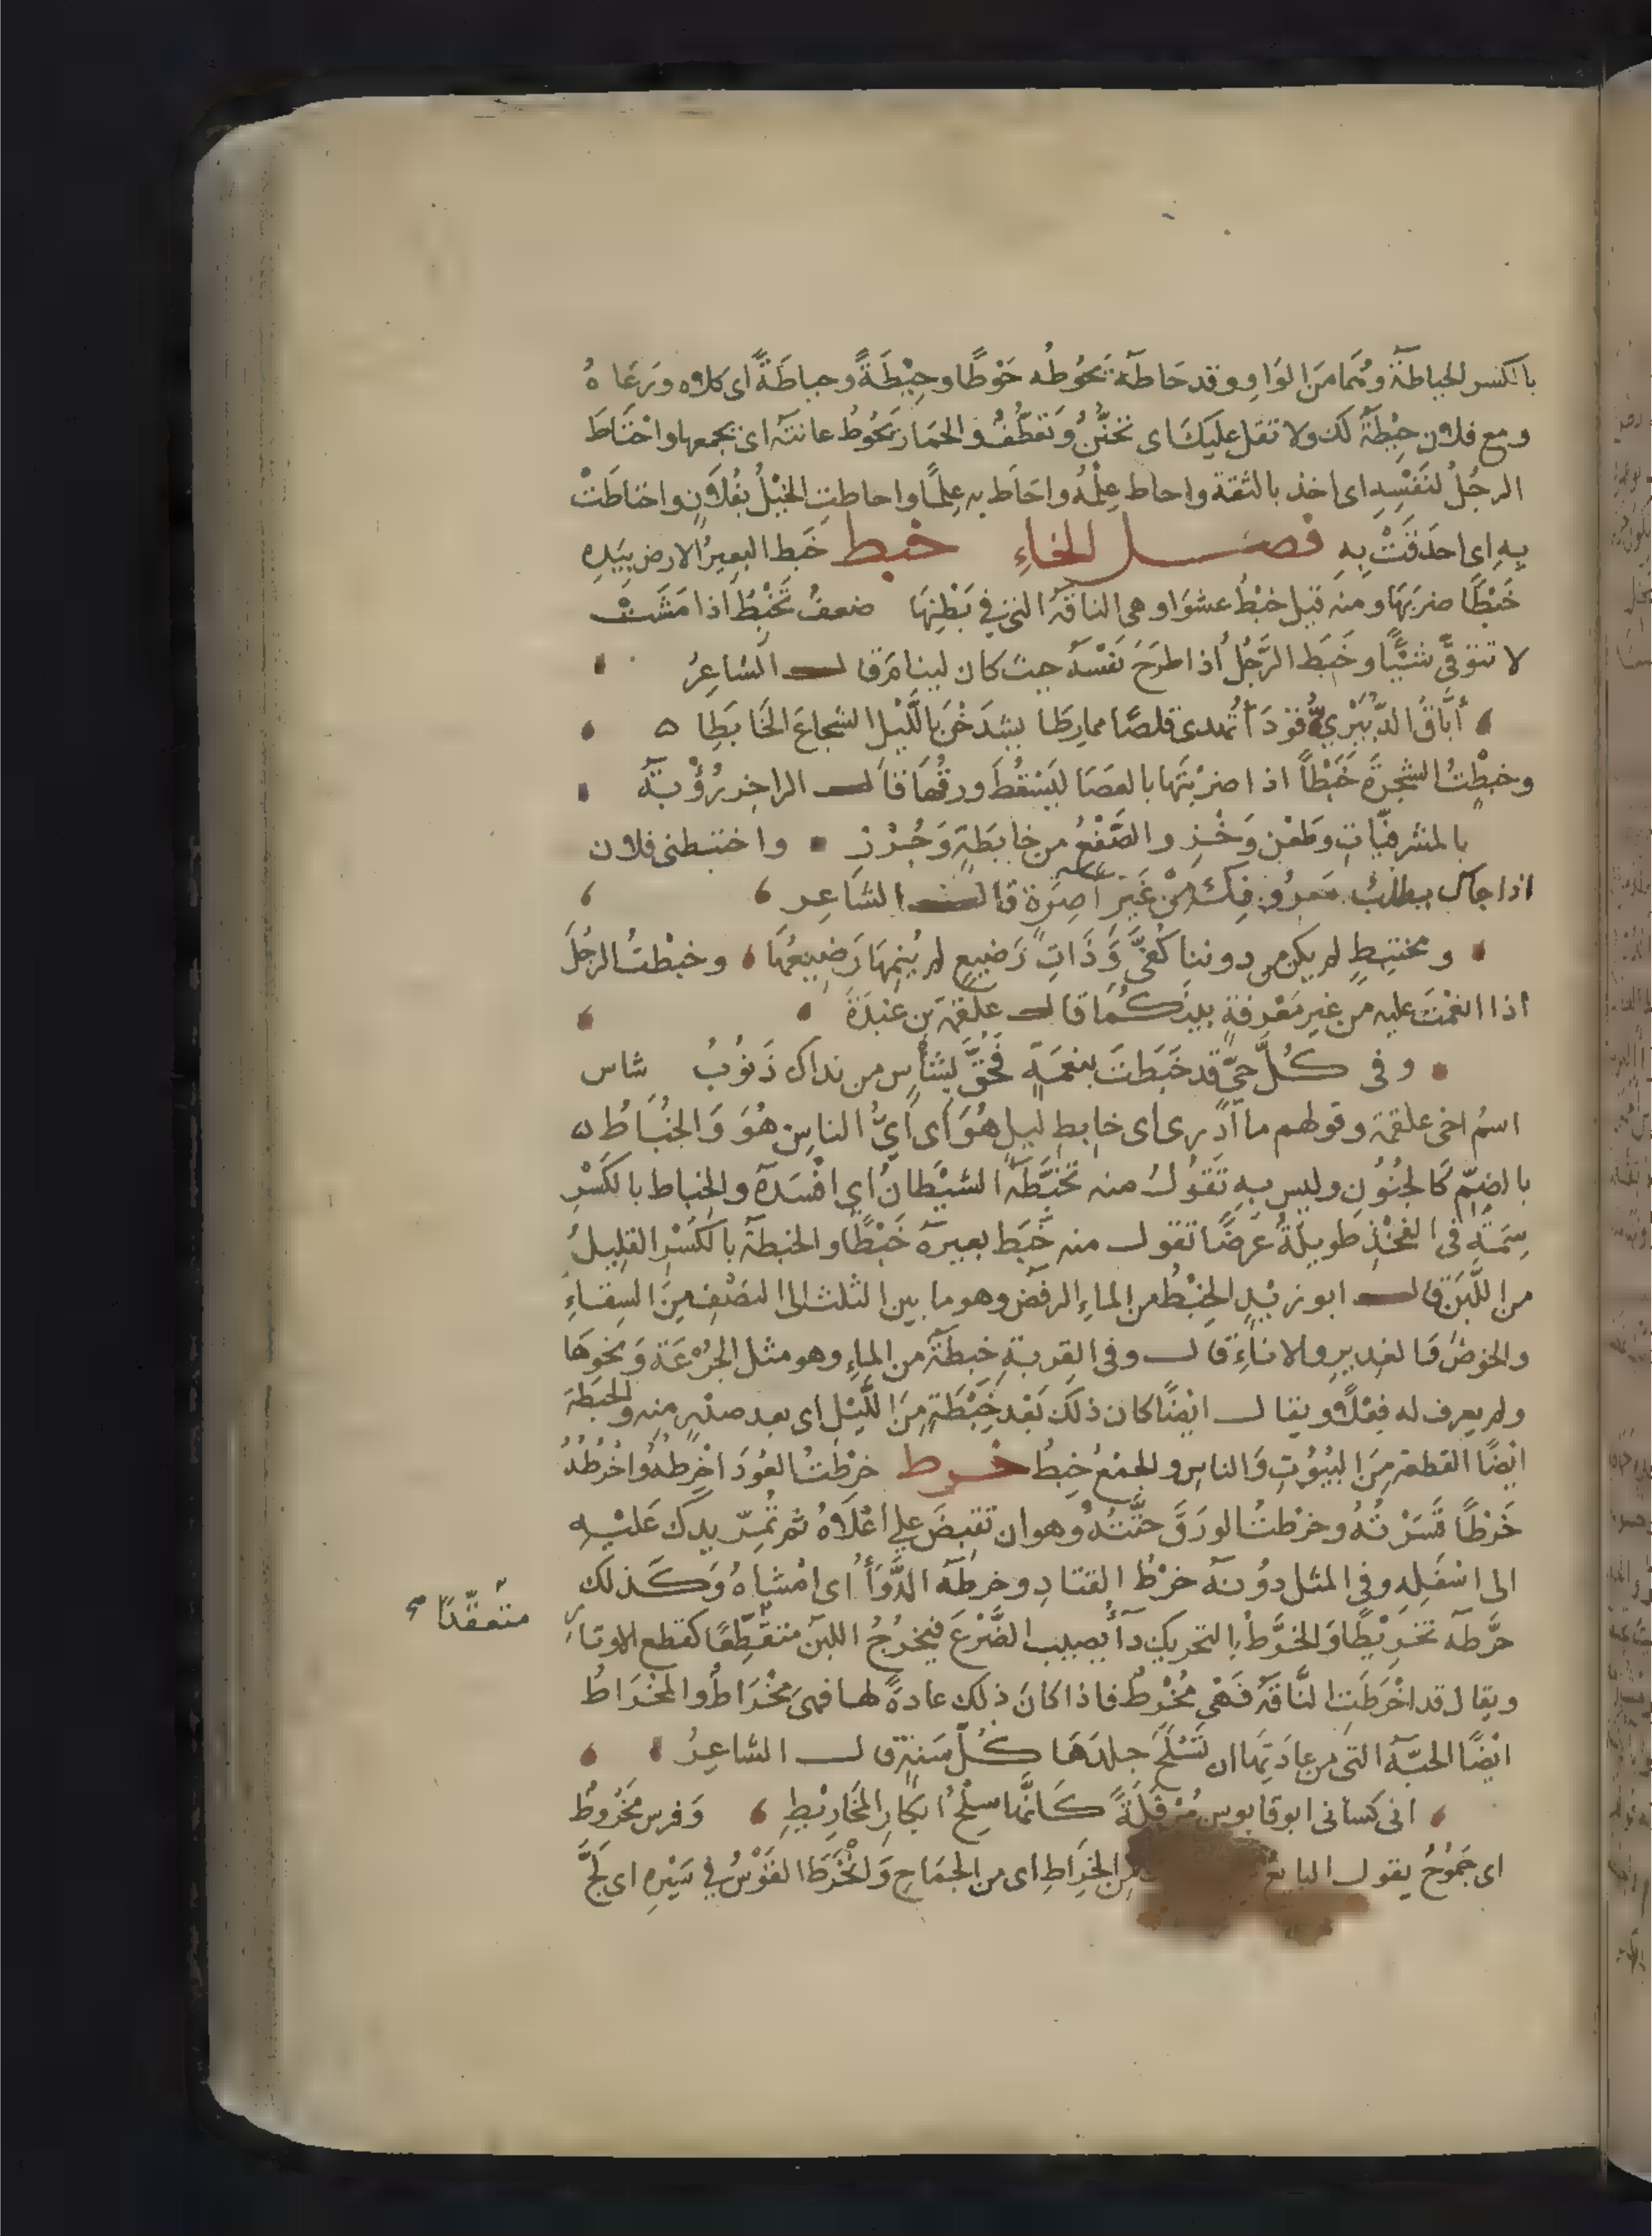 بالكسر الحياطة وهما من الواو وقد حاطه يحوطه حَوْطًا وحِيْطَةً وحياطَةً اى كلاه ورعَاهُ
ومع فلان حِيْطَةٌ لك ولا تقل عليك اى تحنُّنٌ وتعَطُّفٌ والحمَار يحُوطُ عانته اى يجمعها واحْتَاطَ
الرجُلُ لنَفْسِهِ اى اخذ بالثقة واحاط عِلْمُهُ واحَاط به عِلمًا واحاطتِ الخيْلُ بفُلَانٍ واحتاطَتْ
بِهِ اى احدَقَتْ بِهِ فصــل الخاءِ خبط خَبط البعيرُ الارض بِيَدِهِ
خَبْطًا ضربَهَا ومنه قيل خبْطُ عشوَا وهى الناقة التى فى بَطْنِهَا ضعفٌ تَخْبِطُ اذا مَشَتْ
لا تتوقَّى شيْئًا وخَبَط الرَّجُلُ اذا طرَحَ نَفْسَهُ حيث كان لينامَ قال الشاعِرُ
أبَّاقُ الدُّبَيْرِيُّ قوْدَا تُهدى قلصًا ممارِطَا يشدَخْنَ بالَّليْل الشجاعَ الخَابِطِا
وخبطْتُ الشجرةَ خَبْطاً اذا ضربْتَهَا بالعصَا ليَسْقُطَ ورقُهَا قال الراجز رُؤْبَةُ
بالمشرفيّاتِ وطَعْنٍ وَخْـزِ والصَّقْعُ من خابِطَةٍ وَجُـرْزِ واختبطنى فلان
اذا جاك يطلبُ معروفك مِنْ غَيْرِ آصِرَةٍ قال الشاعر
ومختبِطٍ لم يكن من دوننا كُفًى وَذَاتِ رَضيعٍ لم يُنِمْهَا رَضِيعُهَا وخبطْتُ الرجُلَ
اذا انعمْتَ عليه من غيرِ مَعْرفةٍ بينكُمَا قال علقمة بن عَبدَةَ
وفى كُلِّ حىٍّ قد خَبَطْتَ بنعْمَةٍ فَحُقَّ لِشَأْسٍ من نداك ذَنُوبُ شاس
اسمُ اخى علقمة وقولهم ما ادرى اى خابِطِ ليلٍ هُوَ اى أيُّ الناس هُوَ وَالخُبَاطُ
بالضمّ كَالجُنُونِ وليس بهِ تَقُولُ منه تخبَّطَهُ الشيْطَانُ اي افْسَدَهُ والخِباط بالكَسْرِ
سِمَةٌ فى الفَخْذِ طويلةٌ عَرضًا تقول منه خَبَط بعيرَه خَبْطًا والخبطة بالكَسْرِ القلِيلُ
من اللَّبَنِ قال ابو زيْدٍ الخِبْطُ من الماءِ الرفَضُ وهو ما بين الثلث الى النصْفِ مِنَ السِقَاءِ
والحَوضْ وَالغدير والاناءِ قال وفى القِربةِ خبطَةٌ من الماءِ وهو مثل الجُرْعَة وَنحوهَا
ولم يعرف له فِعْلًا ويقال ايضًا كان ذلك بَعْد خِبْطَةٍ مِنَ اللَّيْلِ اى بعد صدْرٍ منه والخِبْطَة
ايضًا القطعة مِنَ البيُوُتِ وَالناسِ والجمْعُ خِبَطٌ خـرط خرطْتُ العُودَ اخْرِطُهُ واخْرُطُهُ
خَرْطًا قَشَرْتُهُ وخرْطتُ الورَقَ حتَّتُهُ وهو ان تقبِضَ على اعْلَاهُ ثم تُمِرّ يدك عَليْهِ
الى اسْفَلِهِ وفى المثل دوُنَهُ خرْطُ القتادِ وخرطَهُ الدَّوَأُ اى امْشاهُ وَكَذلك
خرَّطه تخرِيْطًا وَالخرَطُ بالتحريكِ دآءٌ يصيب الضَّرْعَ فيخرُجُ اللبن متقطِّعًا كقطع الاوتارِ
متعقّدًا
ويقال قد اخْرَطَتِ النَّاقَةُ فَهْيَ مُخْرِطٌ فاذا كان ذلك عادةً لها فهى مِخْرَاطٌ والمخْرَاطُ
ايضًا الحيّةُ التى من عادتِهَا ان تَسْلَخَ جلدَهَا كُلَّ سَنةٍ قال الشاعِرُ
انى كسانى ابو قابوس مُرْفَلَةً كَانَّها سِلْخُ ابكَارِ المخَارِيْطِ وَفرس مخْرُوطٌ
اى جَمُوُحٌ يقول البايعُ مِن الخِرَاطِ اى من الجِمَاحِ وَانْخَرَطَ الفَرَسُ فِي سَيْرِهِ اى لَجَّ